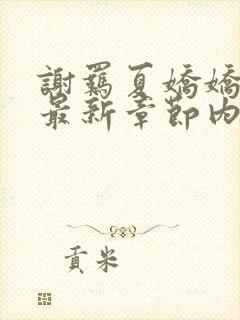 謝羈夏嬌嬌
最新章節內
貢米